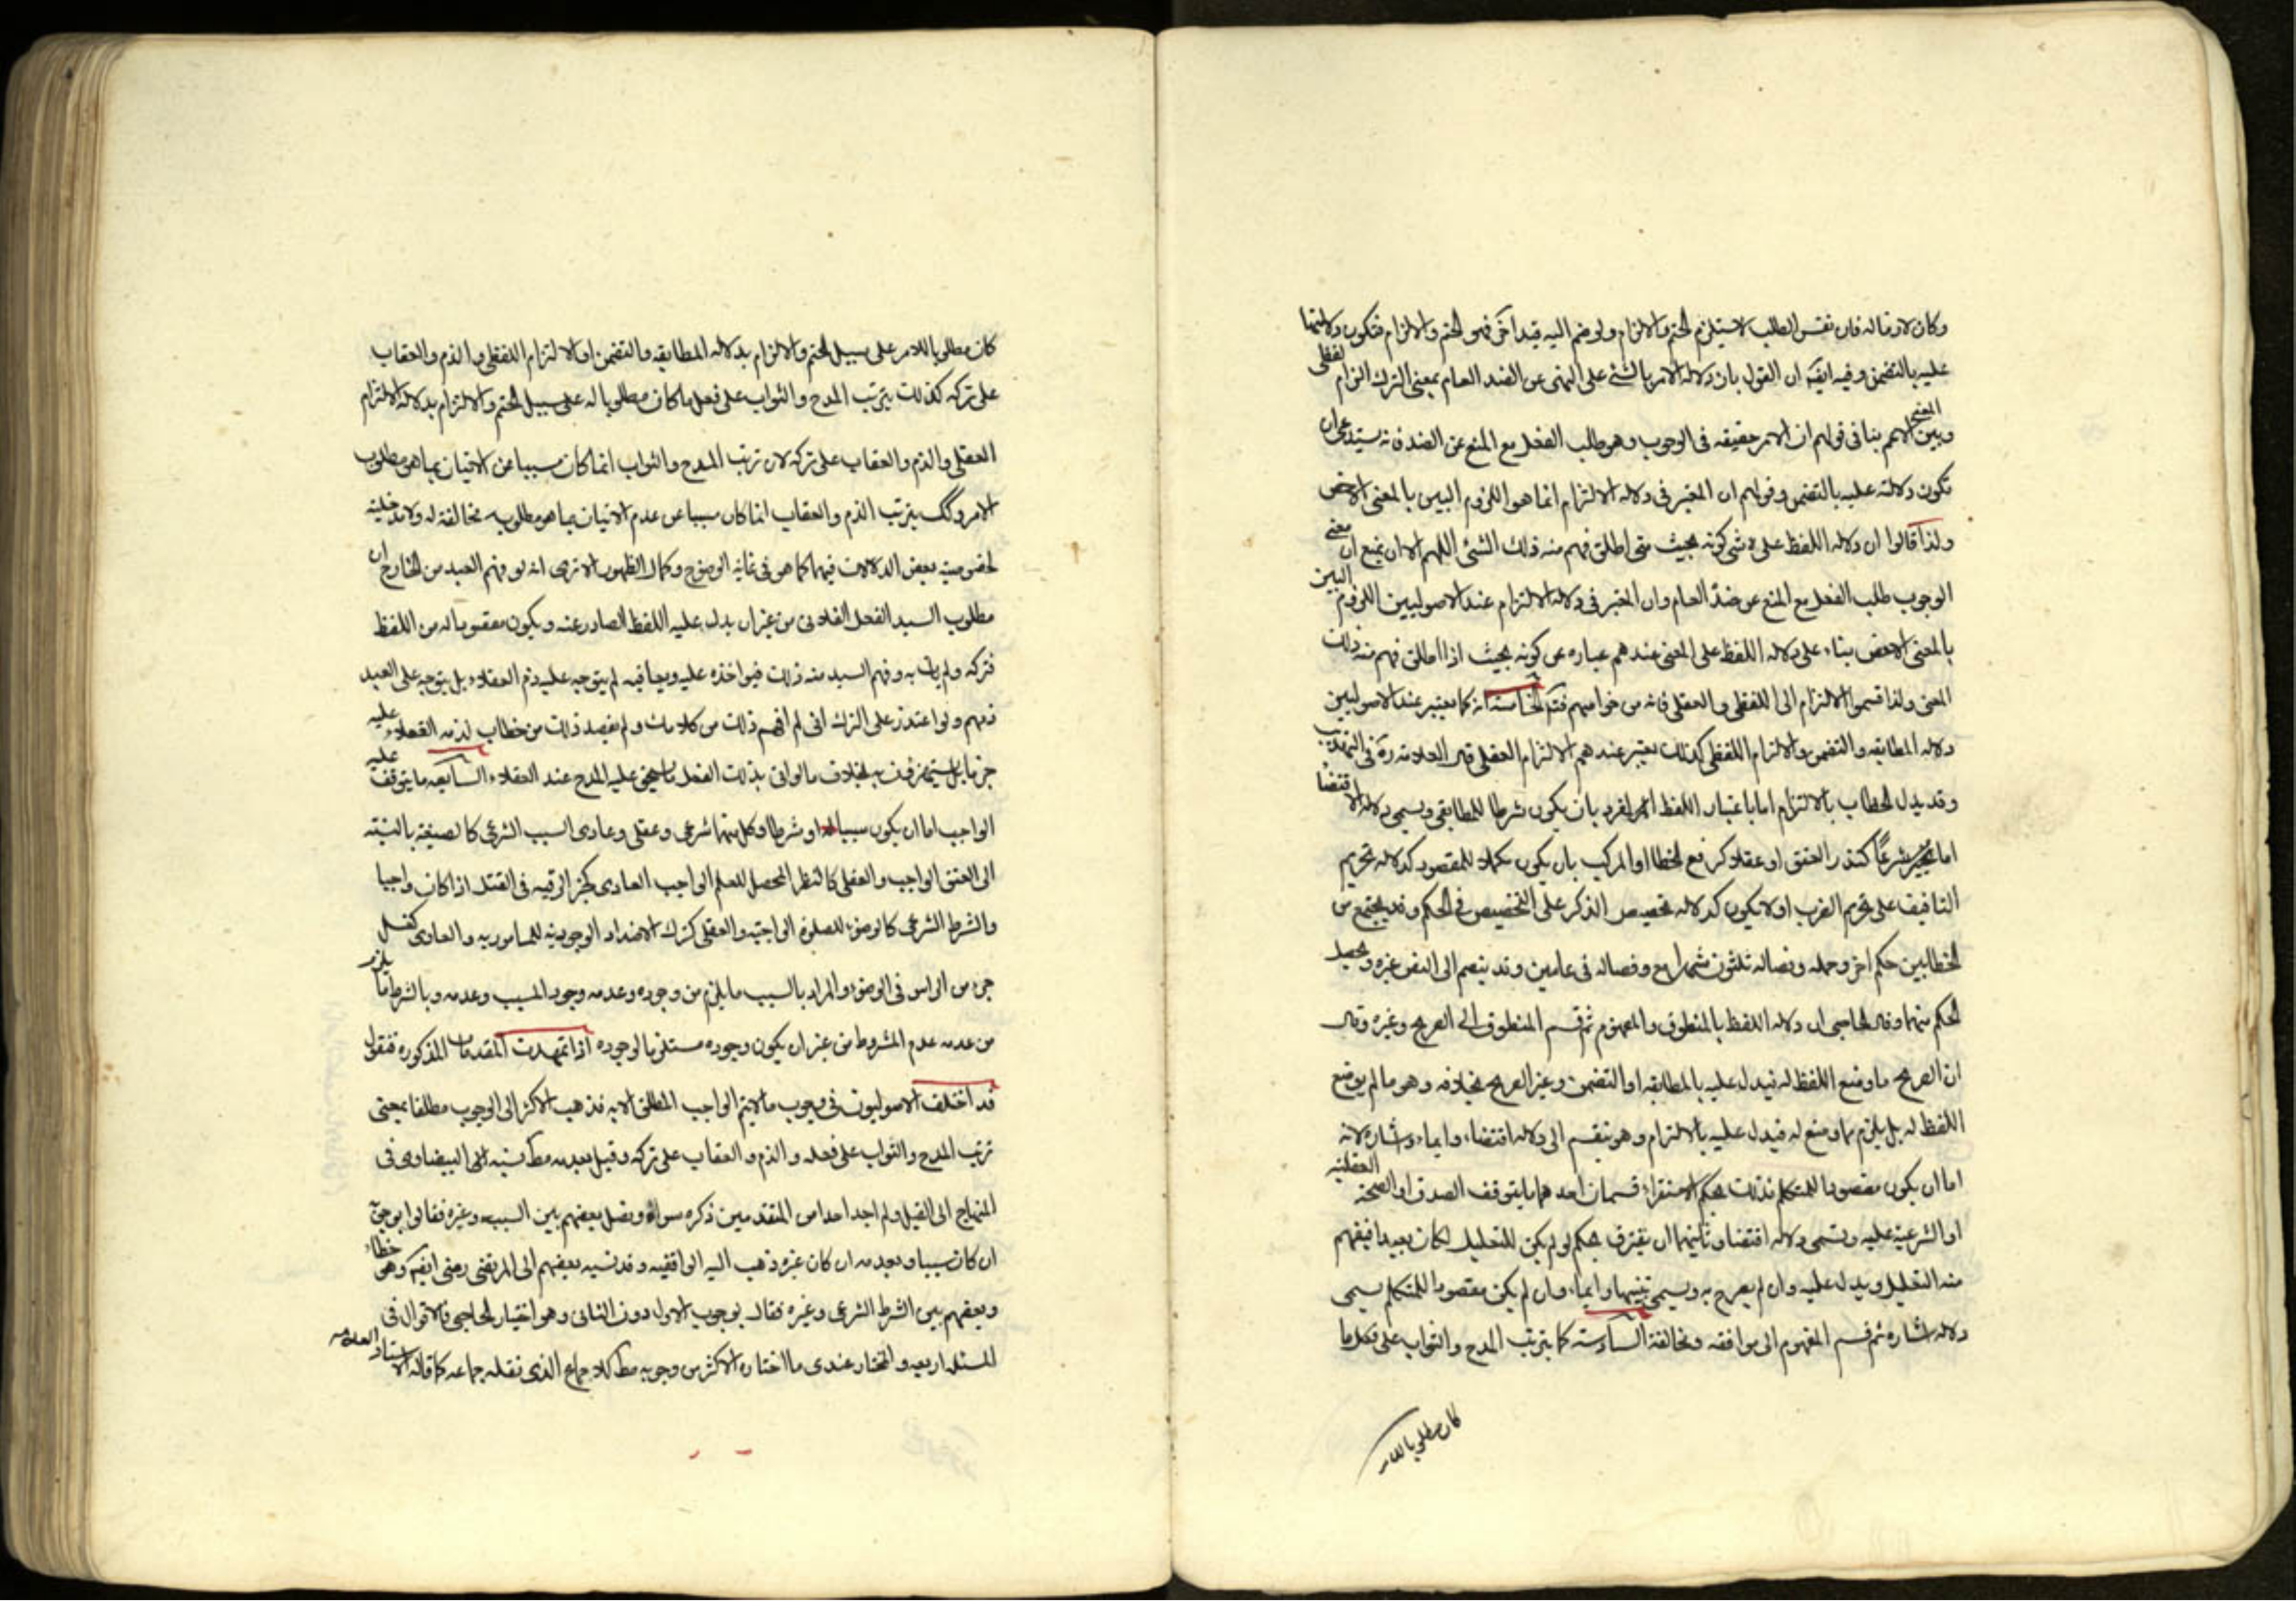 وكان لازما له فان نفس الطلب لا يستلزم الحتم والالزام ولو ضم اليه قيد اخر فهو الحتم والالزام فتكون دلالتها
عليه بالتضمن وفيه ايضا ان القول بان دلالة الامر بالشئ على النهى عن الضد العام بمعنى الترك التزام لفظى
وبين المعنى الاعم ينافى قولهم ان الامر حقيقه فى الوجوب وهو طلب الفعل مع المنع عن الضد فانه يستدعى ان
تكون دلالته عليه بالتضمن وقولهم ان المعتبر فى دلاله الالتزام انما هو اللزوم البين بالمعنى الاخص
ولذا قالوا ان دلاله اللفظ على شى كونه بحيث متى اطلق فهم منه ذلك الشئ اللهم الا ان يمنع ان معنى
الوجوب طلب الفعل مع المنع عن ضده العام وان المعتبر فى دلاله الالتزام عند الاصوليين اللزوم البين
بالمعنى الاخص بناء على دلاله اللفظ على المعنى عندهم عباره عن كونه بحيث اذا اطلق فهم منه ذلك
المعنى ولذا قسموا الالتزام الى اللفظى والعقلى فانه من خواصهم فتد الخامسة انه كما يعتبر عند الاصوليين
دلاله المطابقه والتضمن والالتزام اللفظى كذلك يعتبر عندهم الالتزام العقلى قال العلامه ره فى التهذيب
وقد يدل الخطاب بالالتزام اما باعتبار اللفظ المفرد بان يكون شرطا للمطابقى ويسمى دلاله الاقتضا
اما شرعا كنذر العتق او عقلا كرفع الخطا او المركب بان يكون مكملا للمقصود كدلاله تحريم
التافيف على تحريم الضرب او لا يكون كدلاله تخصيص الذكر على التخصيص فى الحكم وقد يجتمع من
الخطابين حكم اخر وحمله وفصاله ثلثون شهرا مع وفصاله فى عامين وقد ينضم الى النص غيره ويحصل
الحكم منهما وقال الحاجبى ان دلاله اللفظ بالمنطوق والمفهوم ثم قسم المنطوق الى الصريح وغيره وقال
ان الصريح ما وضع اللفظ له فيدل عليه بالمطابقه او التضمن وغير الصريح بخلافه وهو ما لم يوضع
اللفظ له بل يلزم مما وضع له فيدل عليه بالالتزام وهو ينقسم الى دلاله اقتضاء وايماء واشاره لانه
اما ان يكون مقصودا للمتكلم فذلك بحكم الاستقراء قسمان احدهما ما يتوقف الصدق او الصحة العقليه
او الشرعية عليه ويسمى دلاله اقتضا وثانيهما ان يقترن بحكم لو لم يكن للتعليل لكان بعيدا فيفهم
منه التعليل ويدل عليه وان لم يصرح به ويسمى تنبيها وايماء وان لم يكن مقصودا للمتكلم يسمى
دلاله اشاره ثم قسم المفهوم الى موافقه ومخالفة السادسه كما يترتب المدح والثواب على فعل ما
كان مطلوبا للامر
كان مطلوبا للامر على سبيل الحتم والالزام بدلاله المطابقه والتضمن او الالتزام اللفظى والذم والعقاب
على تركه كذلك يترتب المدح والثواب على فعل ما كان مطلوبا له على سبيل الحتم والالزام بدلاله الالتزام
العقلى والذم والعقاب على تركه لان ترتب المدح والثواب انما كان مسببا عن الاتيان بما هو مطلوب
الامر وكك يترتب الذم والعقاب انما كان مسببا عن عدم الاتيان بما هو مطلوبه مخالفة له ولا مدخلية
لخصوصيه بعض الدلالات فيها كما هو فى غايه الوضوح وكمال الظهور الا ترى انه لو فهم العبد من الخارج ان
مطلوب السيد الفعل الفلانى من غير ان يدل عليه اللفظ الصادر عنه ويكون مقصودا له من اللفظ
فتركه ولم يات به وفهم السيد منه ذلك فيواخذه عليه ويعاقبه لم يتوجه عليه ذم العقلاء بل يتوجه على العبد
ذمهم ولو اعتذر على الترك انى لم افهم ذلك من كلامك ولم يقصد ذلك من خطاب لذمه العقلاء عليه
جزما بل يستهزؤن به بخلاف ما لو اتى بذلك الفعل يستحق عليه المدح عند العقلاء السابعه ما يتوقف عليه
الواجب اما ان يكون سببا له او شرطا وكل منهما شرعى وعقلى وعادى السبب الشرعى كالصيغة بالنسبه
الى العتق الواجب والعقلى كالنظر المحصل للعلم الواجب العادى كجز الرقبه فى القتل اذا كان واجبا
والشرط الشرعى كالوضوء للصلوة الواجبه والعقلى كترك الاضداد الوجوديه للمامور به والعادى كغسل
جزء من الراس فى الوضوء والمراد بالسبب ما يلزم من وجوده وعدمه وجود المسبب وعدمه وبالشرط ما يلزم
من عدمه عدم المشروط من غير ان يكون وجوده مستلزما لوجوده اذا تمهدت المقدمات المذكوره فنقول
قد اختلف الاصوليون فى وجوب ما لا يتم الواجب المطلق الا به فذهب الاكثر الى الوجوب مطلقا بمعنى
ترتب المدح والثواب على فعله والذم والعقاب على تركه وقيل بعدمه مط نسبه الى البيضاوى فى
المنهاج الى القيل ولم اجد احدا من المتقدمين ذكره سواه وفصل بعضهم بين السبب وغيره فقالوا بوجوبه
ان كان سببا وبعدمه ان كان غيره ذهب اليه الواقفيه وقد نسبه بعضهم الى المرتضى رضى ايضا وهو خطاء
وبعضهم بين الشرط الشرعى وغيره فقال بوجوب الاول دون الثانى وهو اختيار الحاجبى فالاقوال فى
المسئله اربعه والمختار عندى ما اختاره الاكثر من وجوبه مط للاجماع الذى نقله جماعه كما قاله الاستاد العلامه